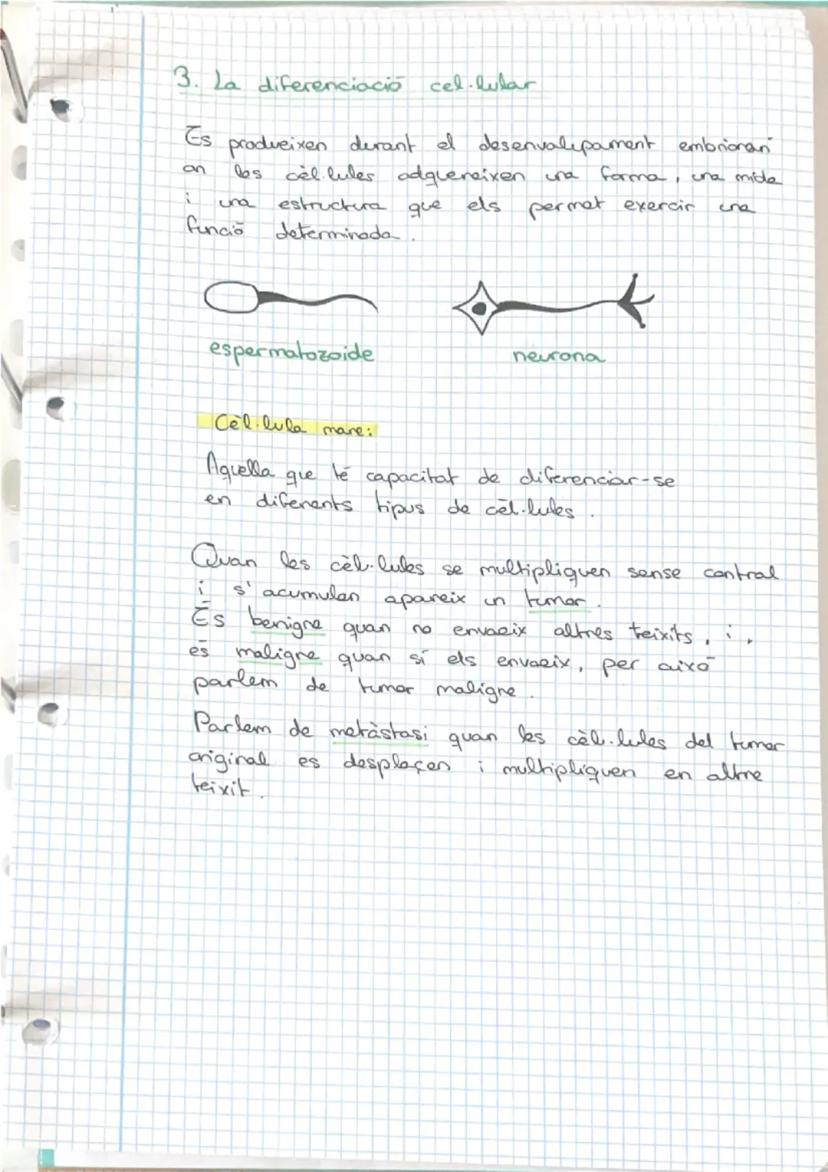 3. La diferenciació cel·lular
Es produeixen durant el desenvalupament embrionari
on les cèl·lules adquereixen una forma, una mida
i una estructura que els permet exercir una
funció determinada.
espermatozoide neurona
Cèl·lula mare:
Aquella que té capacitat de diferenciar-se
en diferents tipus de cèl·lules.
Quan les cèl·lules se multipliquen sense control
i s'acumulen apareix un tumor.
És benigne quan no envaeix altres teixits, i,
és maligne quan sí els envaeix, per això
parlem de tumor maligne.
Parlem de metàstasi quan les cèl·lules del tumor
original es desplaçen i multipliquen en altre
teixit.